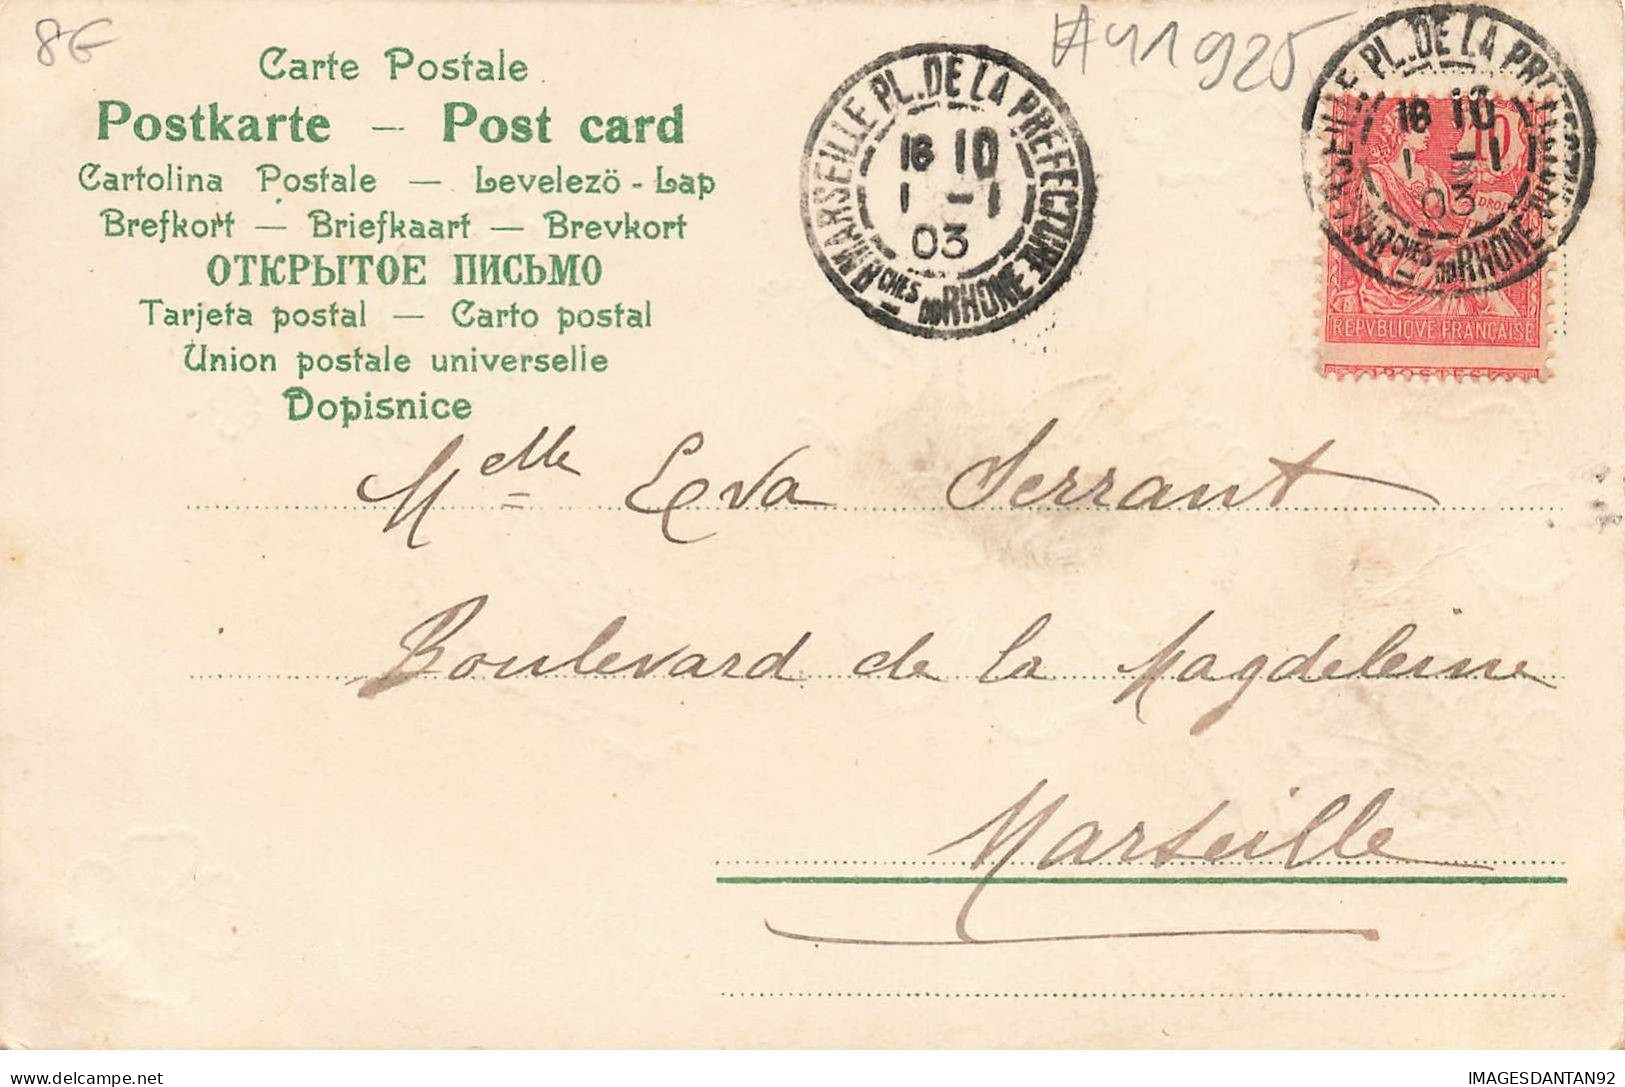 8€
#41925
Carte Postale
Postkarte — Post card
Cartolina Postale — Levelezö-Lap
Brefkort — Briefkaart — Brevkort
ОТКРЫТОЕ ПИСЬМО
Tarjeta postal — Carto postal
Union postale universelle
Dopisnice
MARSEILLE PL. DE LA PREFECTURE
16 10
1 - 1
03
Bches DU RHONE
MARSEILLE PL. DE LA PREFECTURE
16 10
1 - 1
03
Bches DU RHONE
10
REPVBLIQVE FRANÇAISE
POSTES
Melle Eva Serrant
Boulevard de la Magdeleine
Marseille
IMAGESDANTAN92